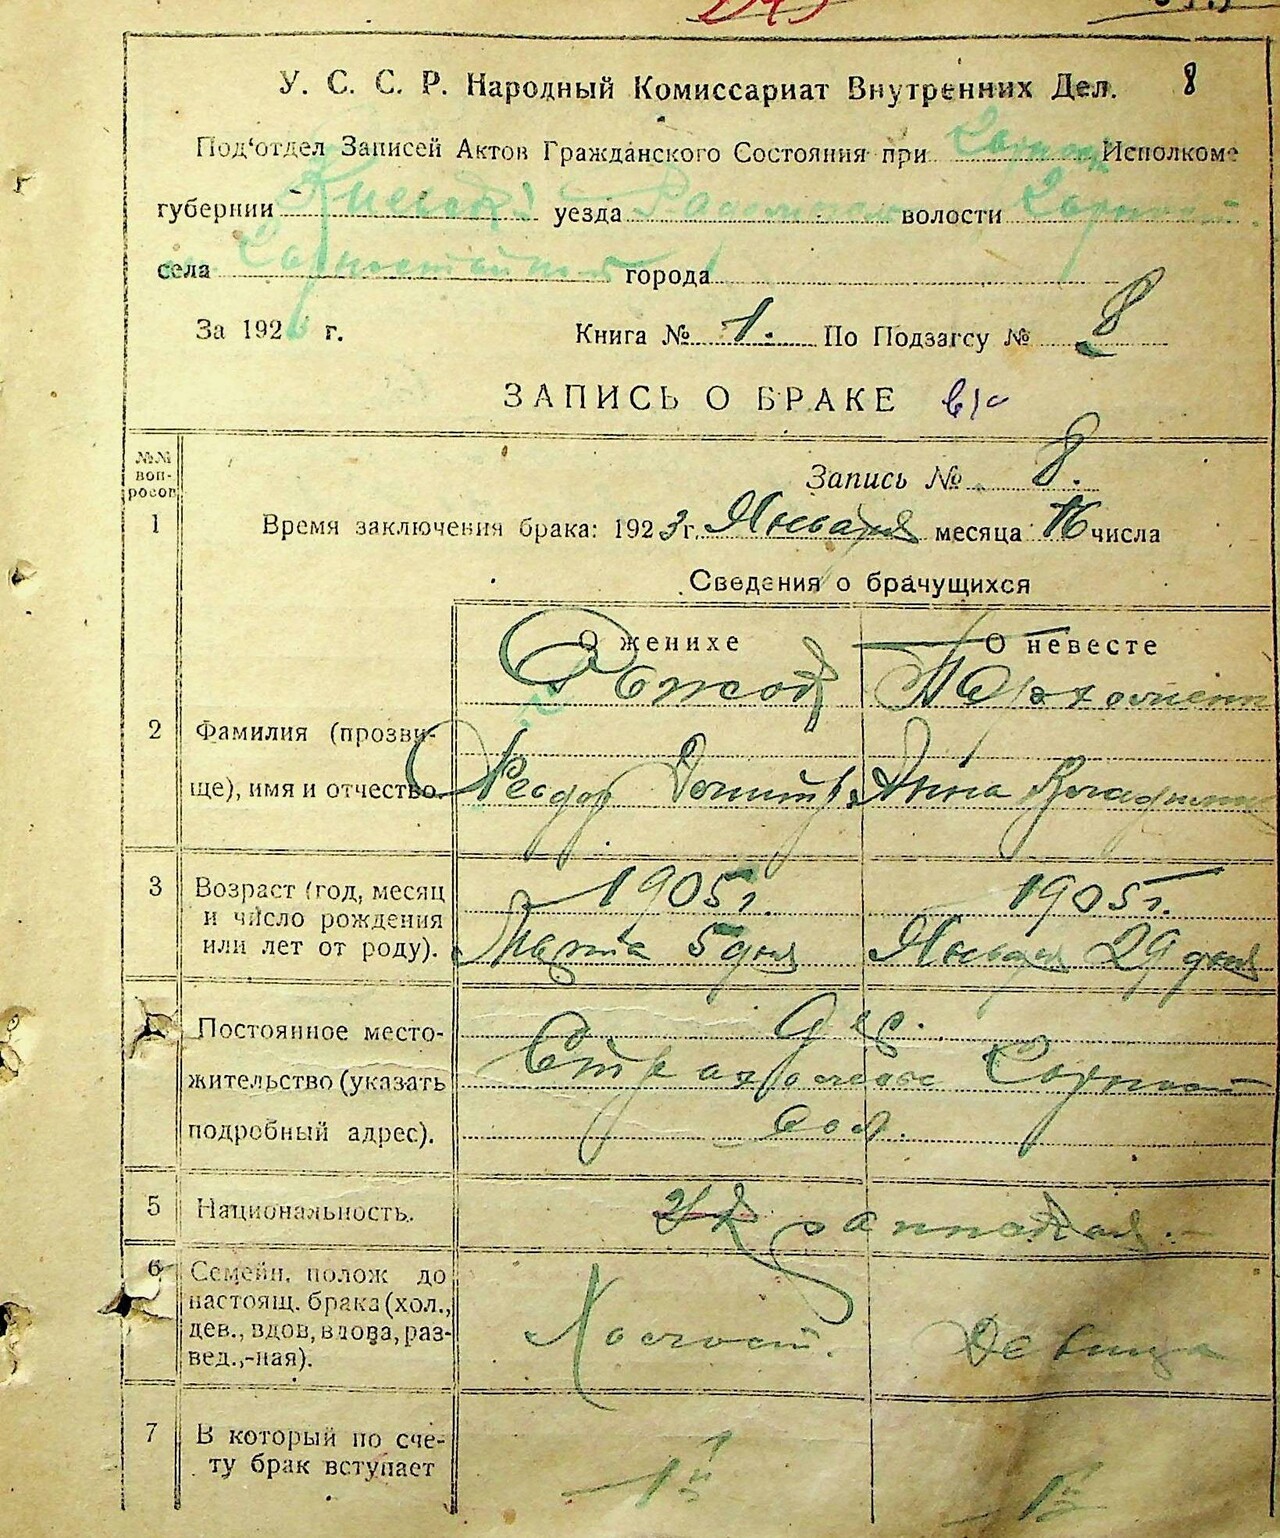 У. С. С. Р. Народный Комиссариат Внутренних Дел. 8
Под'отдел Записей Актов Гражданского Состояния при Исполкоме
губернии Киевск уезда волости
села города
За 192 г. Книга № 1. По Подзагсу № 8
ЗАПИСЬ О БРАКЕ
№№ вопросов
Запись № 8.
1 Время заключения брака: 1923 г. Января месяца 16 числа
Сведения о брачущихся
О женихе О невесте
2 Фамилия (прозви-
ще), имя и отчество. Феодор Димитр. Анна Владимир
3 Возраст (год, месяц 1905 г. 1905 г.
и число рождения
или лет от роду). Марта 5 дня Января 29 дня
Постоянное место- дер.
жительство (указать Страхолесье
подробный адрес).
5 Национальность. Украинская.
6 Семейн. полож до
настоящ. брака (хол.,
дев., вдов, вдова, раз- Холост. Девица
вед.,-ная).
7 В который по сче- 1й 1й
ту брак вступает